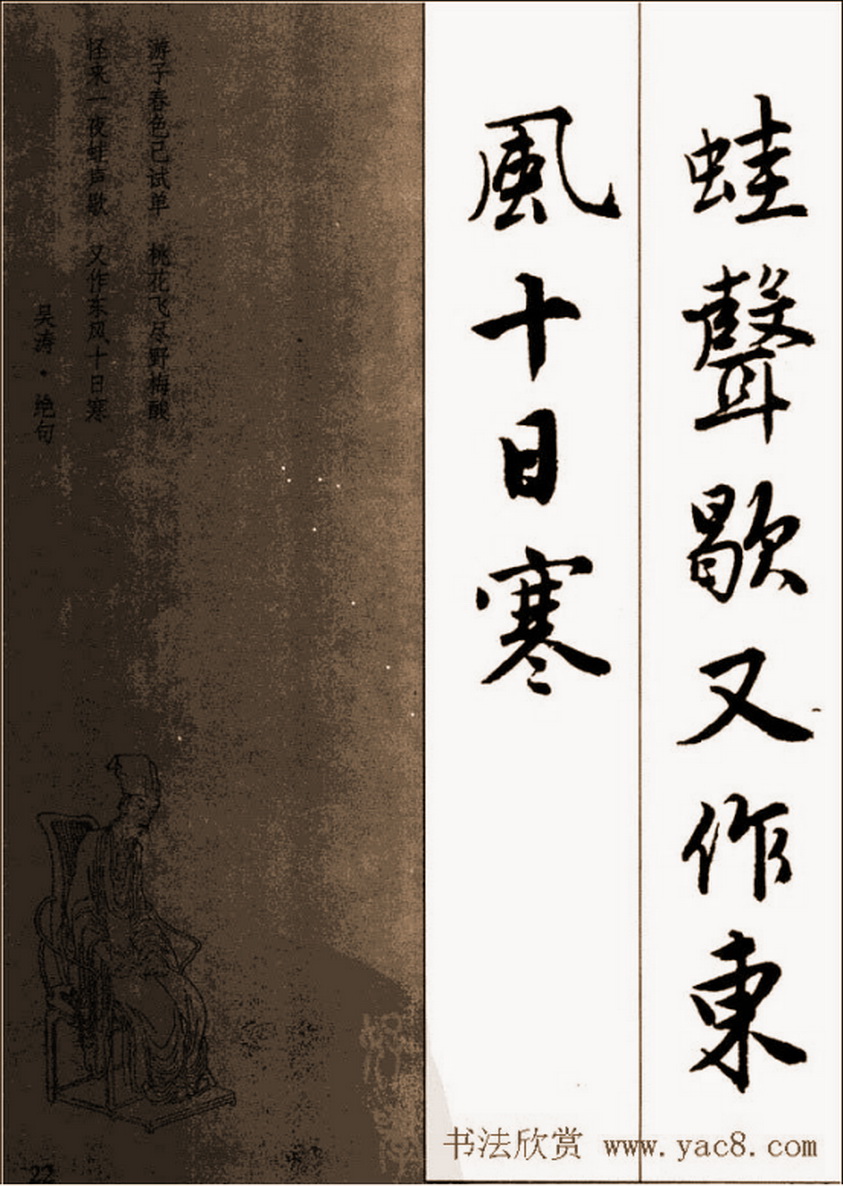 蛙聲歇又作東
風十日寒
游子春色己试单 桃花飞尽野梅酸
怪来一夜蛙声歇 又作东风十日寒
吴涛·绝句
22
书法欣赏 www.yac8.com